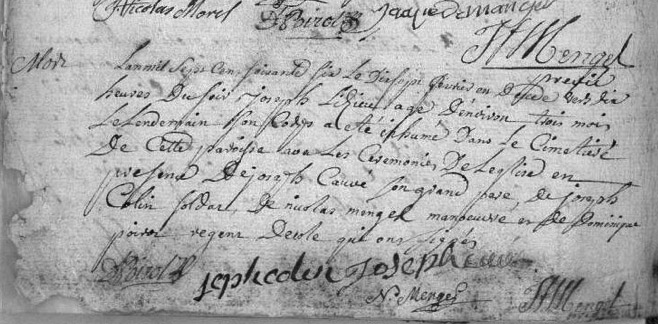 Nicolas Morel
D Poirot Jacque Demange
JH Mengel
Mort Lanmil Sept Cens soixante six Le Dixsept fevrier on Decede vers dix
heures Du soir joseph age Denviron trois mois
Le Lendemain son Corps a eté inhumé Dans Le Cimetiere
De Cette paroisse avec Les Ceremonies De Leglise en
presence De joseph Cauvé son grand pere, de joseph
Colin soldat, De nicolas mengel manoeuvre et De Dominique
poirot regent Decole qui ont signés
D Poirot josephcolin Joseph
N. Mengel JH Mengel